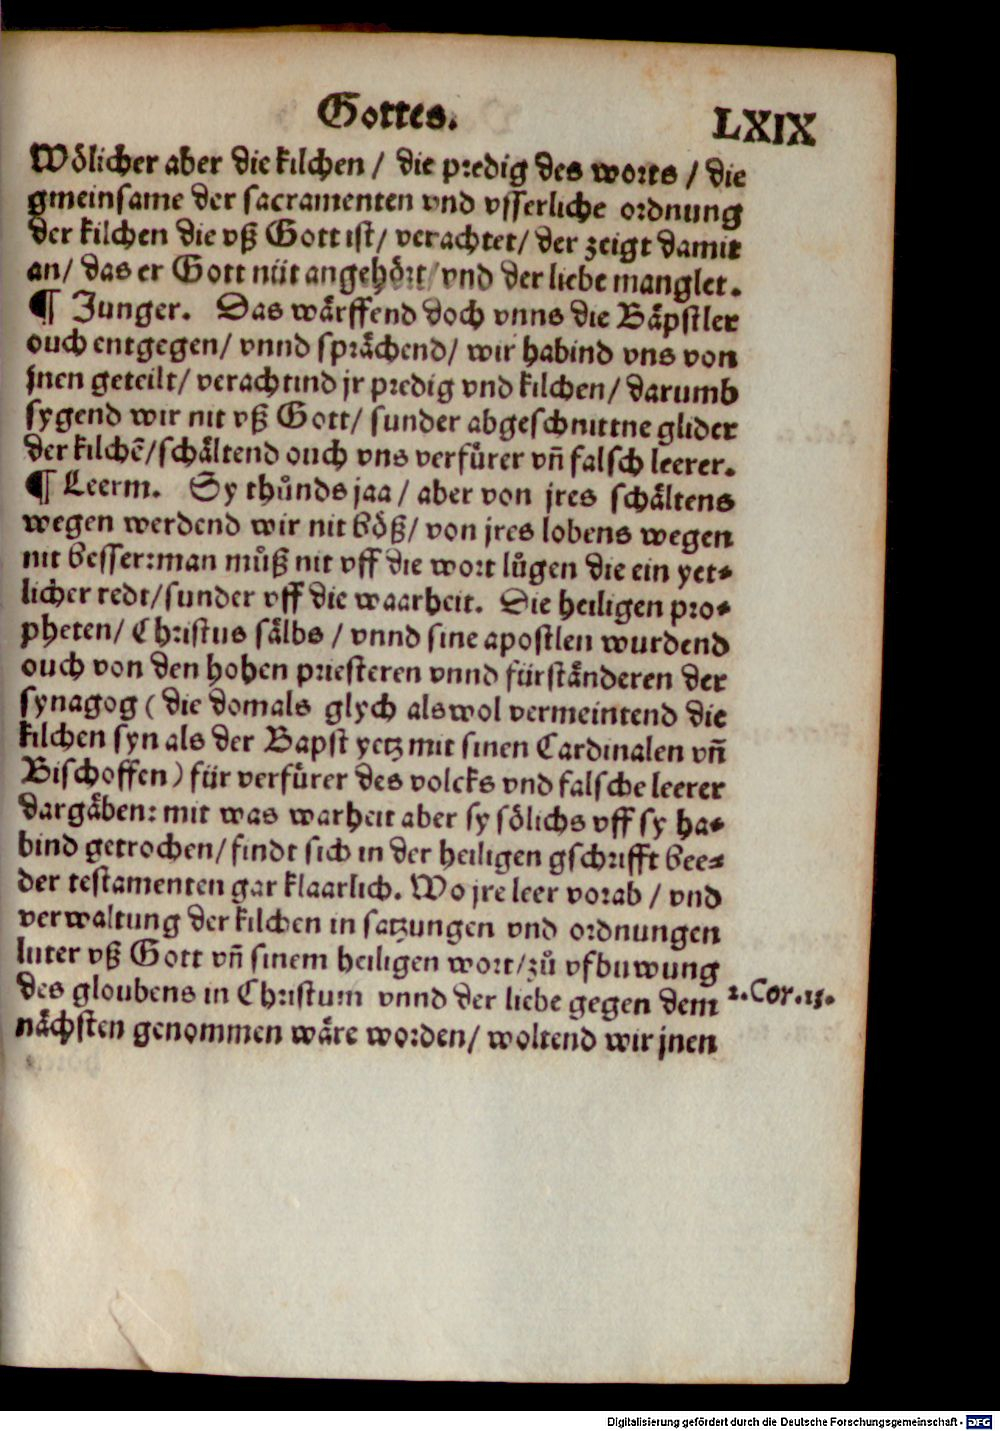 Gottes. LXIX
Woͤlicher aber die kilchen / die predig des worts / die
gmeinsame der sacramenten vnd vsserliche ordnung
der kilchen die vß Gott ist / verachtet / der zeigt damit
an / das er Gott nüt angehoͤrt / vnd der liebe manglet.
¶ Junger. Das waͤrffend doch vnns die Baͤpstler
ouch entgegen / vnnd spraͤchend / wir habind vns von
jnen geteilt / verachtind jr predig vnd kilchen / darumb
sygend wir nit vß Gott / sunder abgeschnittne glider
der kilchē / schaͤltend ouch vns verfuͤrer vñ falsch leerer.
¶ Leerm. Sy thuͦnds jaa / aber von jres schaͤltens
wegen werdend wir nit boͤß / von jres lobens wegen
nit besser: man muͦß nit vff die wort luͦgen die ein yet⸗
licher redt / sunder vff die waarheit. Die heiligen pro⸗
pheten / Christus saͤlbs / vnnd sine apostlen wurdend
ouch von den hohen priesteren vnnd fürstaͤnderen der
synagog ( die domals glych als wol vermeintend die
kilchen syn als der Bapst yetz mit sinen Cardinalen vñ
Bischoffen ) für verfuͤrer des volcks vnd falsche leerer
dargaͤben: mit was warheit aber sy soͤlichs vff sy ha⸗
bind getrochen / findt sich in der heiligen gschrifft bee⸗
der testamenten gar klaarlich. Wo jre leer vorab / vnd
verwaltung der kilchen in satzungen vnd ordnungen
luter vß Gott vñ sinem heiligen wort / zuͦ vfbuwung
des gloubens in Christum vnnd der liebe gegen dem
2. Cor. 13.
naͤchsten genommen waͤre worden / woltend wir jnen
Digitalisierung gefördert durch die Deutsche Forschungsgemeinschaft - DFG